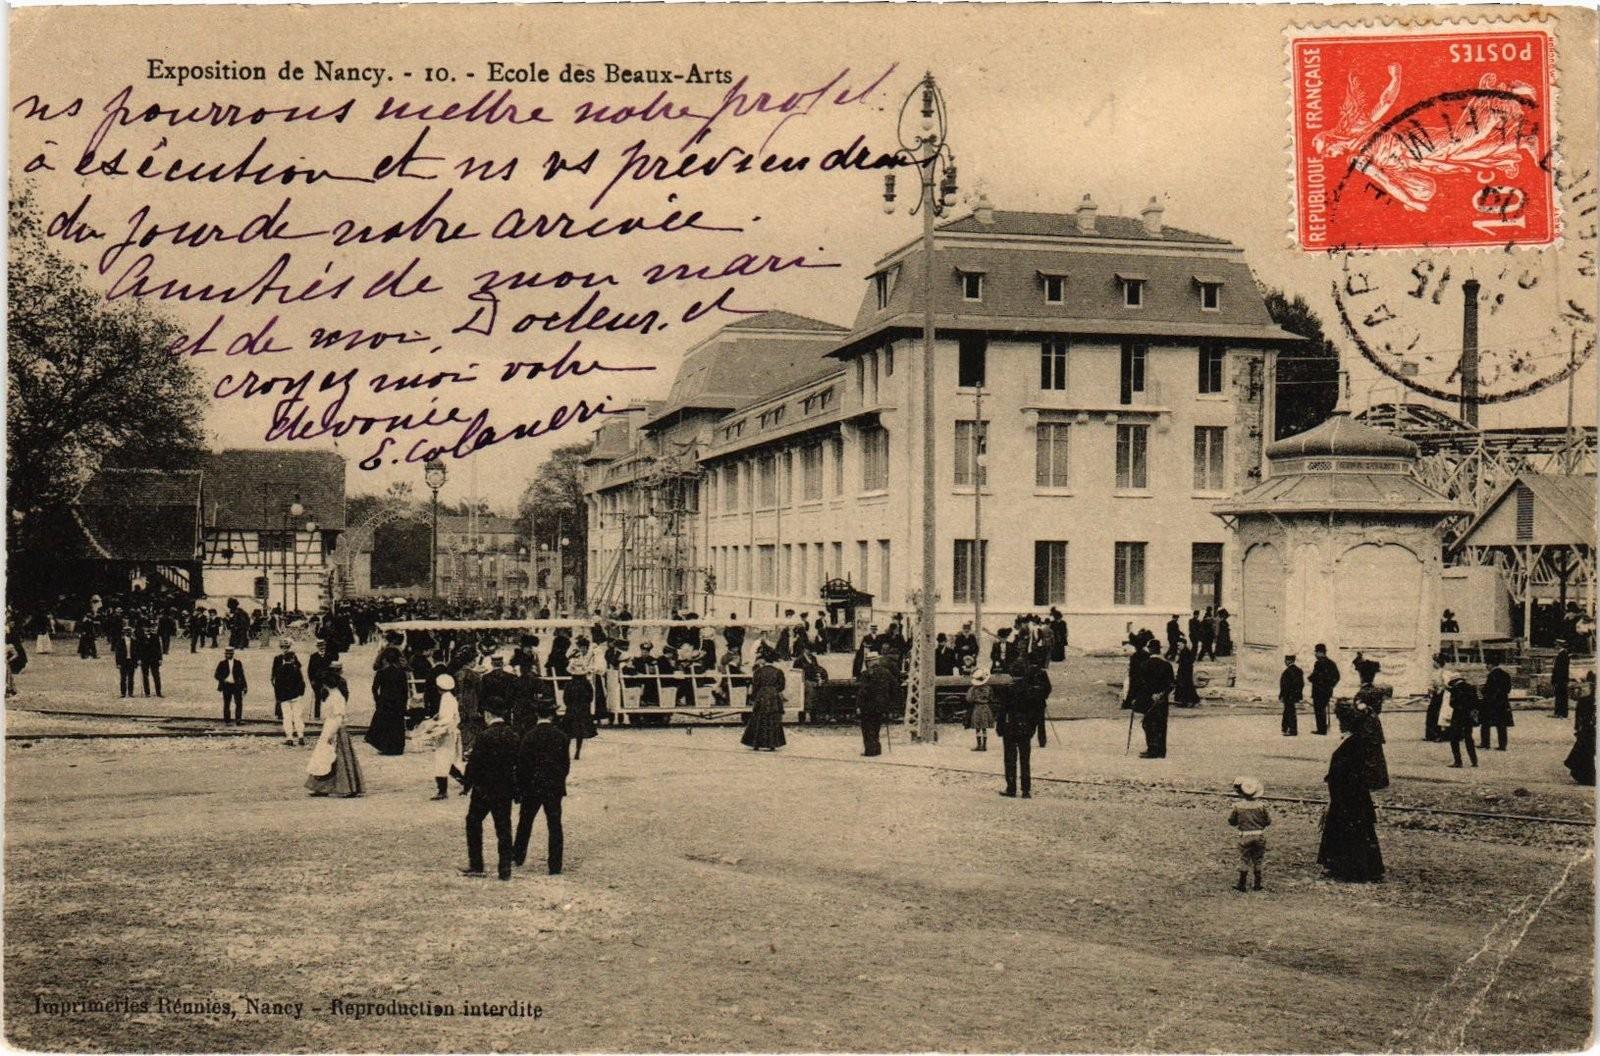 Exposition de Nancy. - 10. - Ecole des Beaux-Arts
ns pourrons mettre notre projet
à exécution et ns vs préviendrons
du jour de notre arrivée.
Amitiés de mon mari
et de moi, Docteur, et
croyez moi votre
dévouée
E. Colaneri
POSTES
REPUBLIQUE FRANÇAISE
10 c
MEURTHE ET M
NANCY
GARE
15
09
Imprimeries Réunies, Nancy - Reproduction interdite